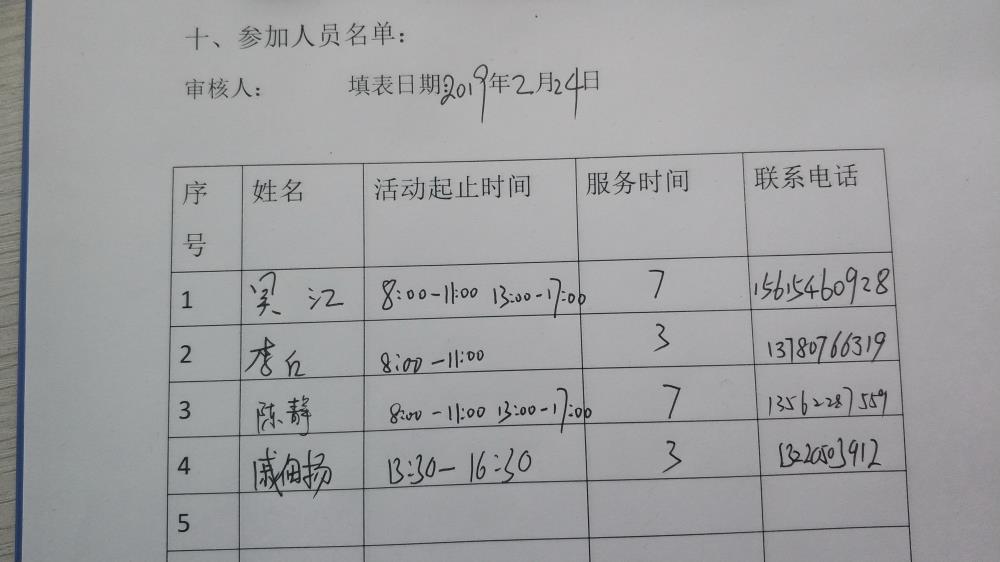 十、参加人员名单：
审核人： 填表日期：2019年2月24日
序号 姓名 活动起止时间 服务时间 联系电话
1 吴江 8:00-11:00 13:00-17:00 7 15615460928
2 李丘 8:00-11:00 3 13780766319
3 陈静 8:00-11:00 13:00-17:00 7 13562287559
4 戚田扬 13:30-16:30 3 13220503912
5